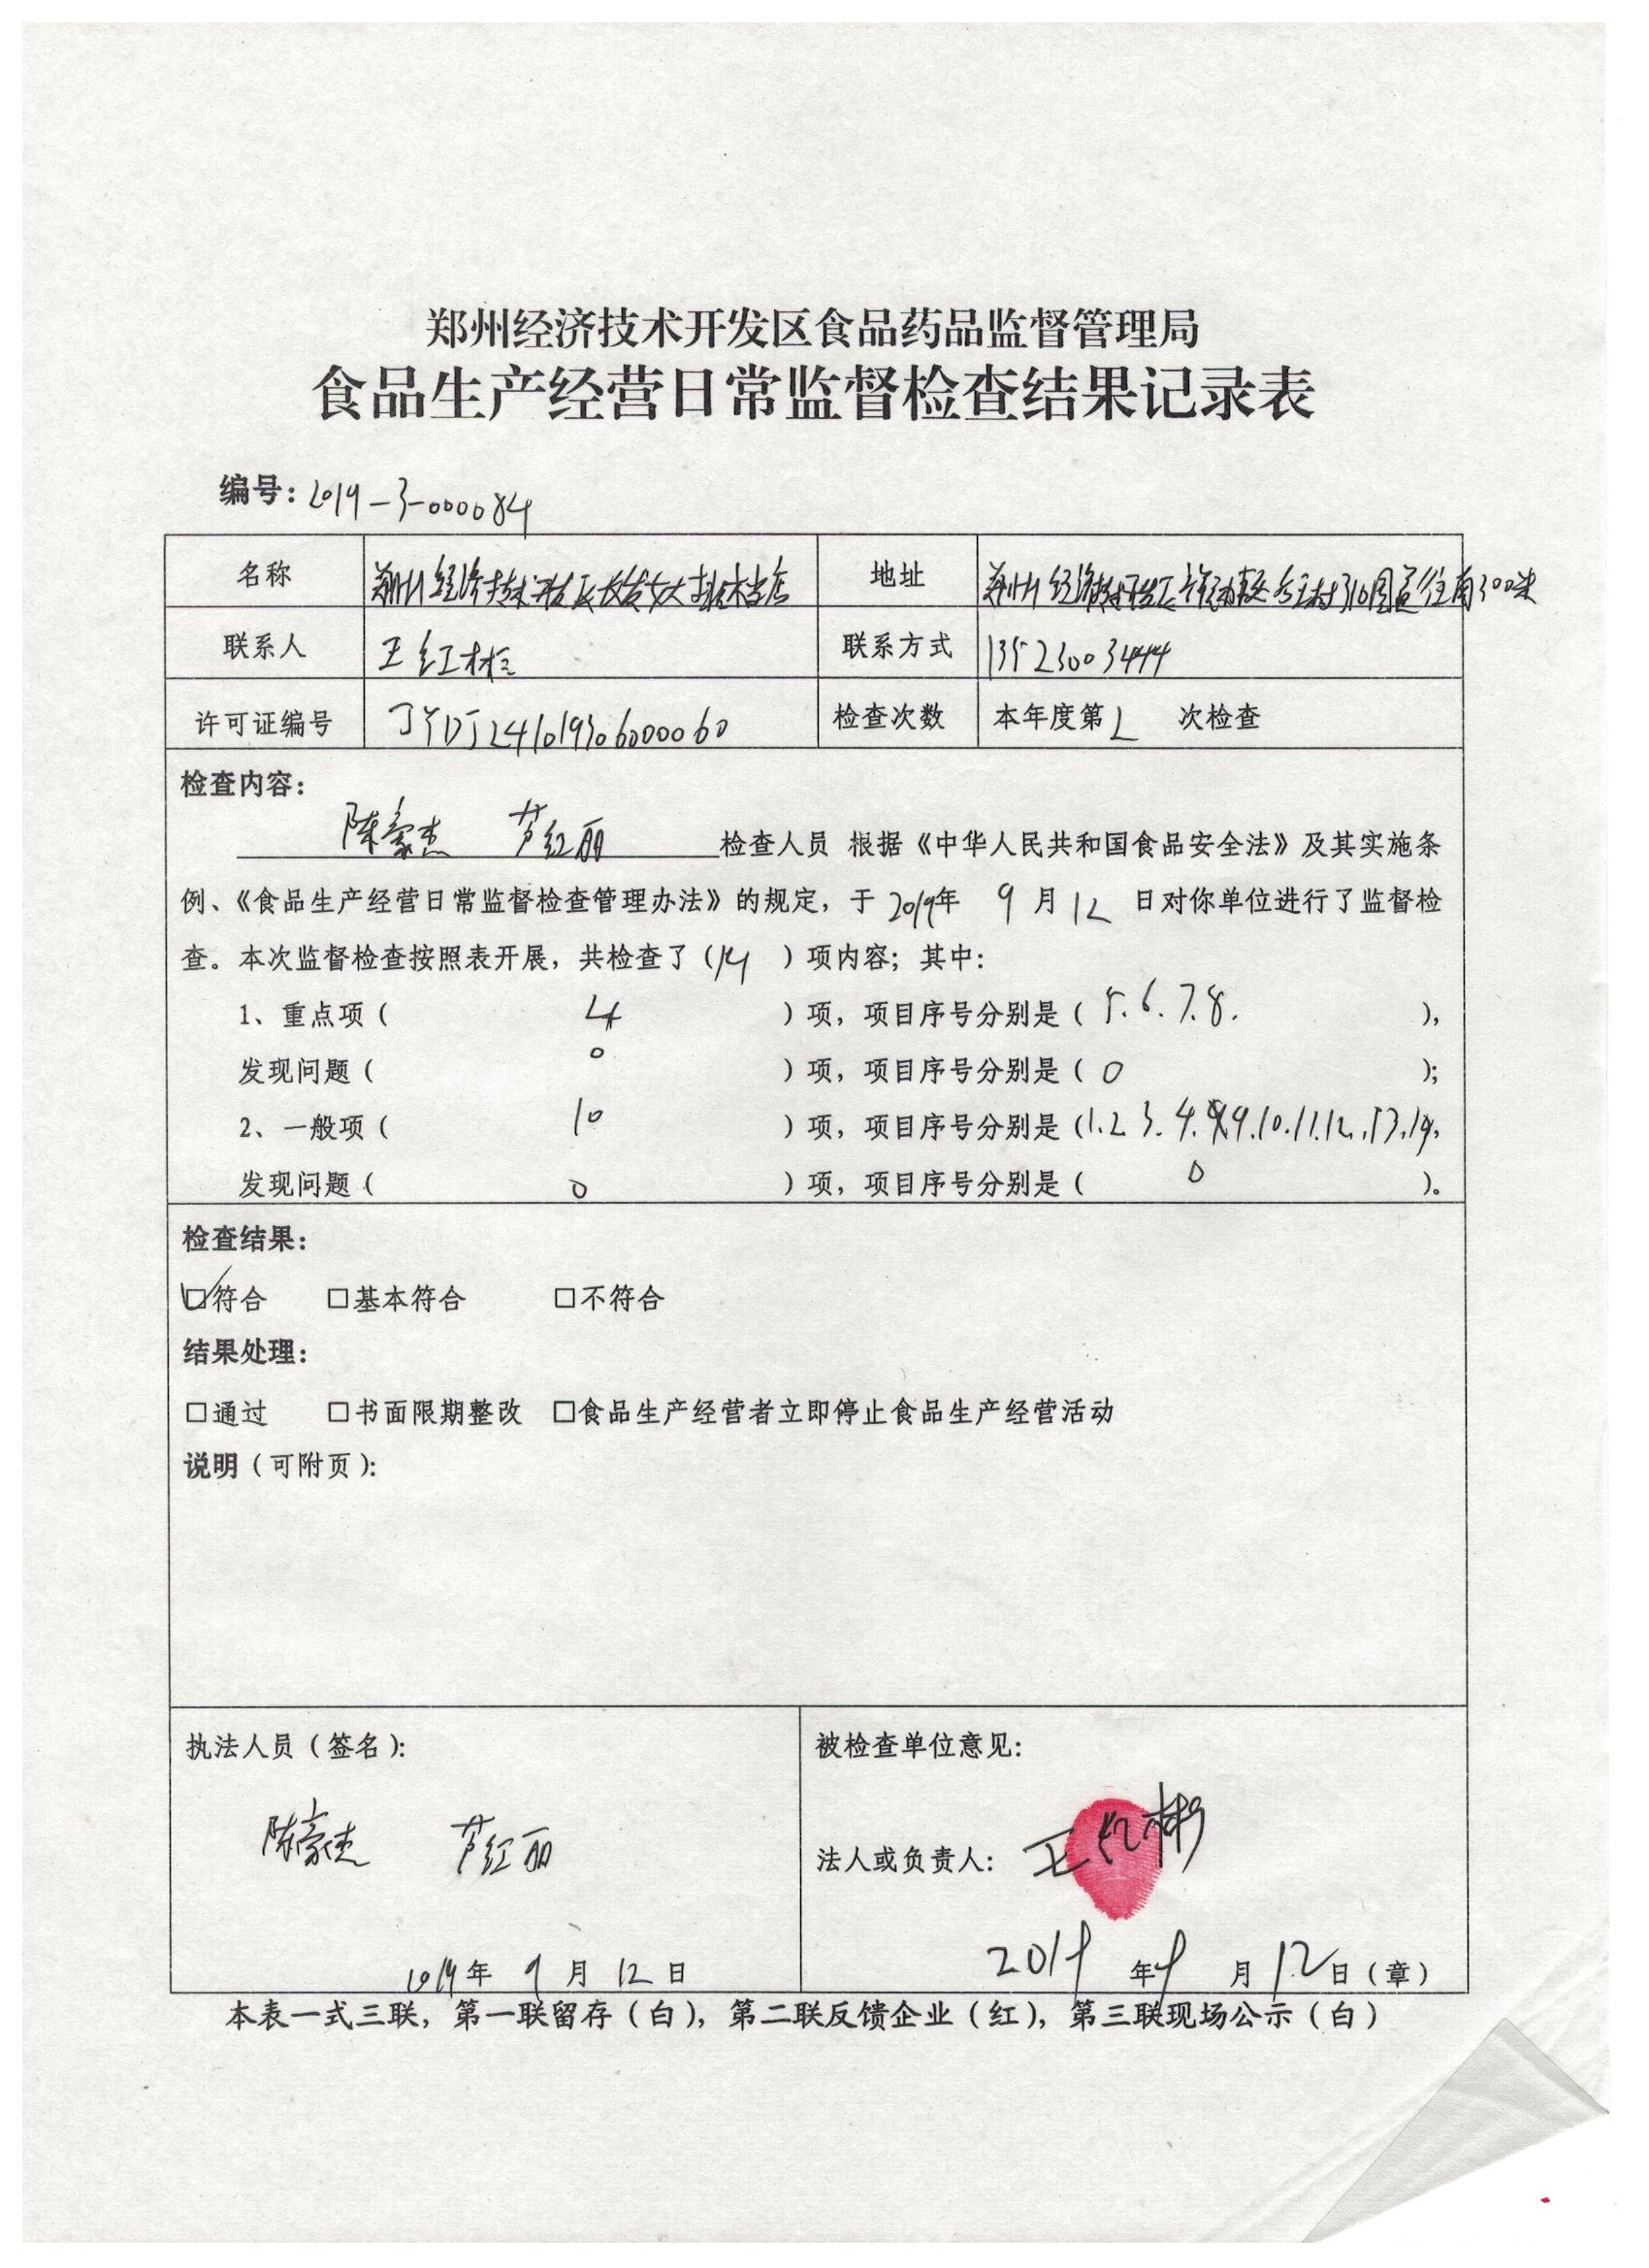 郑州经济技术开发区食品药品监督管理局
食品生产经营日常监督检查结果记录表
编号：2019-3-000084
名称 郑州经济技术开发区 地址 郑州经济技术开发区 310国道往南300米
联系人 王红彬 联系方式 13523003444
许可证编号 JYDJ241019306000060 检查次数 本年度第2次检查
检查内容：
陈豪杰 芦红丽 检查人员 根据《中华人民共和国食品安全法》及其实施条
例、《食品生产经营日常监督检查管理办法》的规定，于2019年 9月12日对你单位进行了监督检
查。本次监督检查按照表开展，共检查了（14）项内容；其中：
1、重点项（4）项，项目序号分别是（5.6.7.8.），
发现问题（0）项，项目序号分别是（0）；
2、一般项（10）项，项目序号分别是（1.2 3.4.9.10.11.12.13.14，
发现问题（0）项，项目序号分别是（0）。
检查结果：
☑符合 □基本符合 □不符合
结果处理：
□通过 □书面限期整改 □食品生产经营者立即停止食品生产经营活动
说明（可附页）：
执法人员（签名）： 被检查单位意见：
陈豪杰 芦红丽 法人或负责人：王红彬
2019年 9月 12日 2019年9月12日（章）
本表一式三联，第一联留存（白），第二联反馈企业（红），第三联现场公示（白）